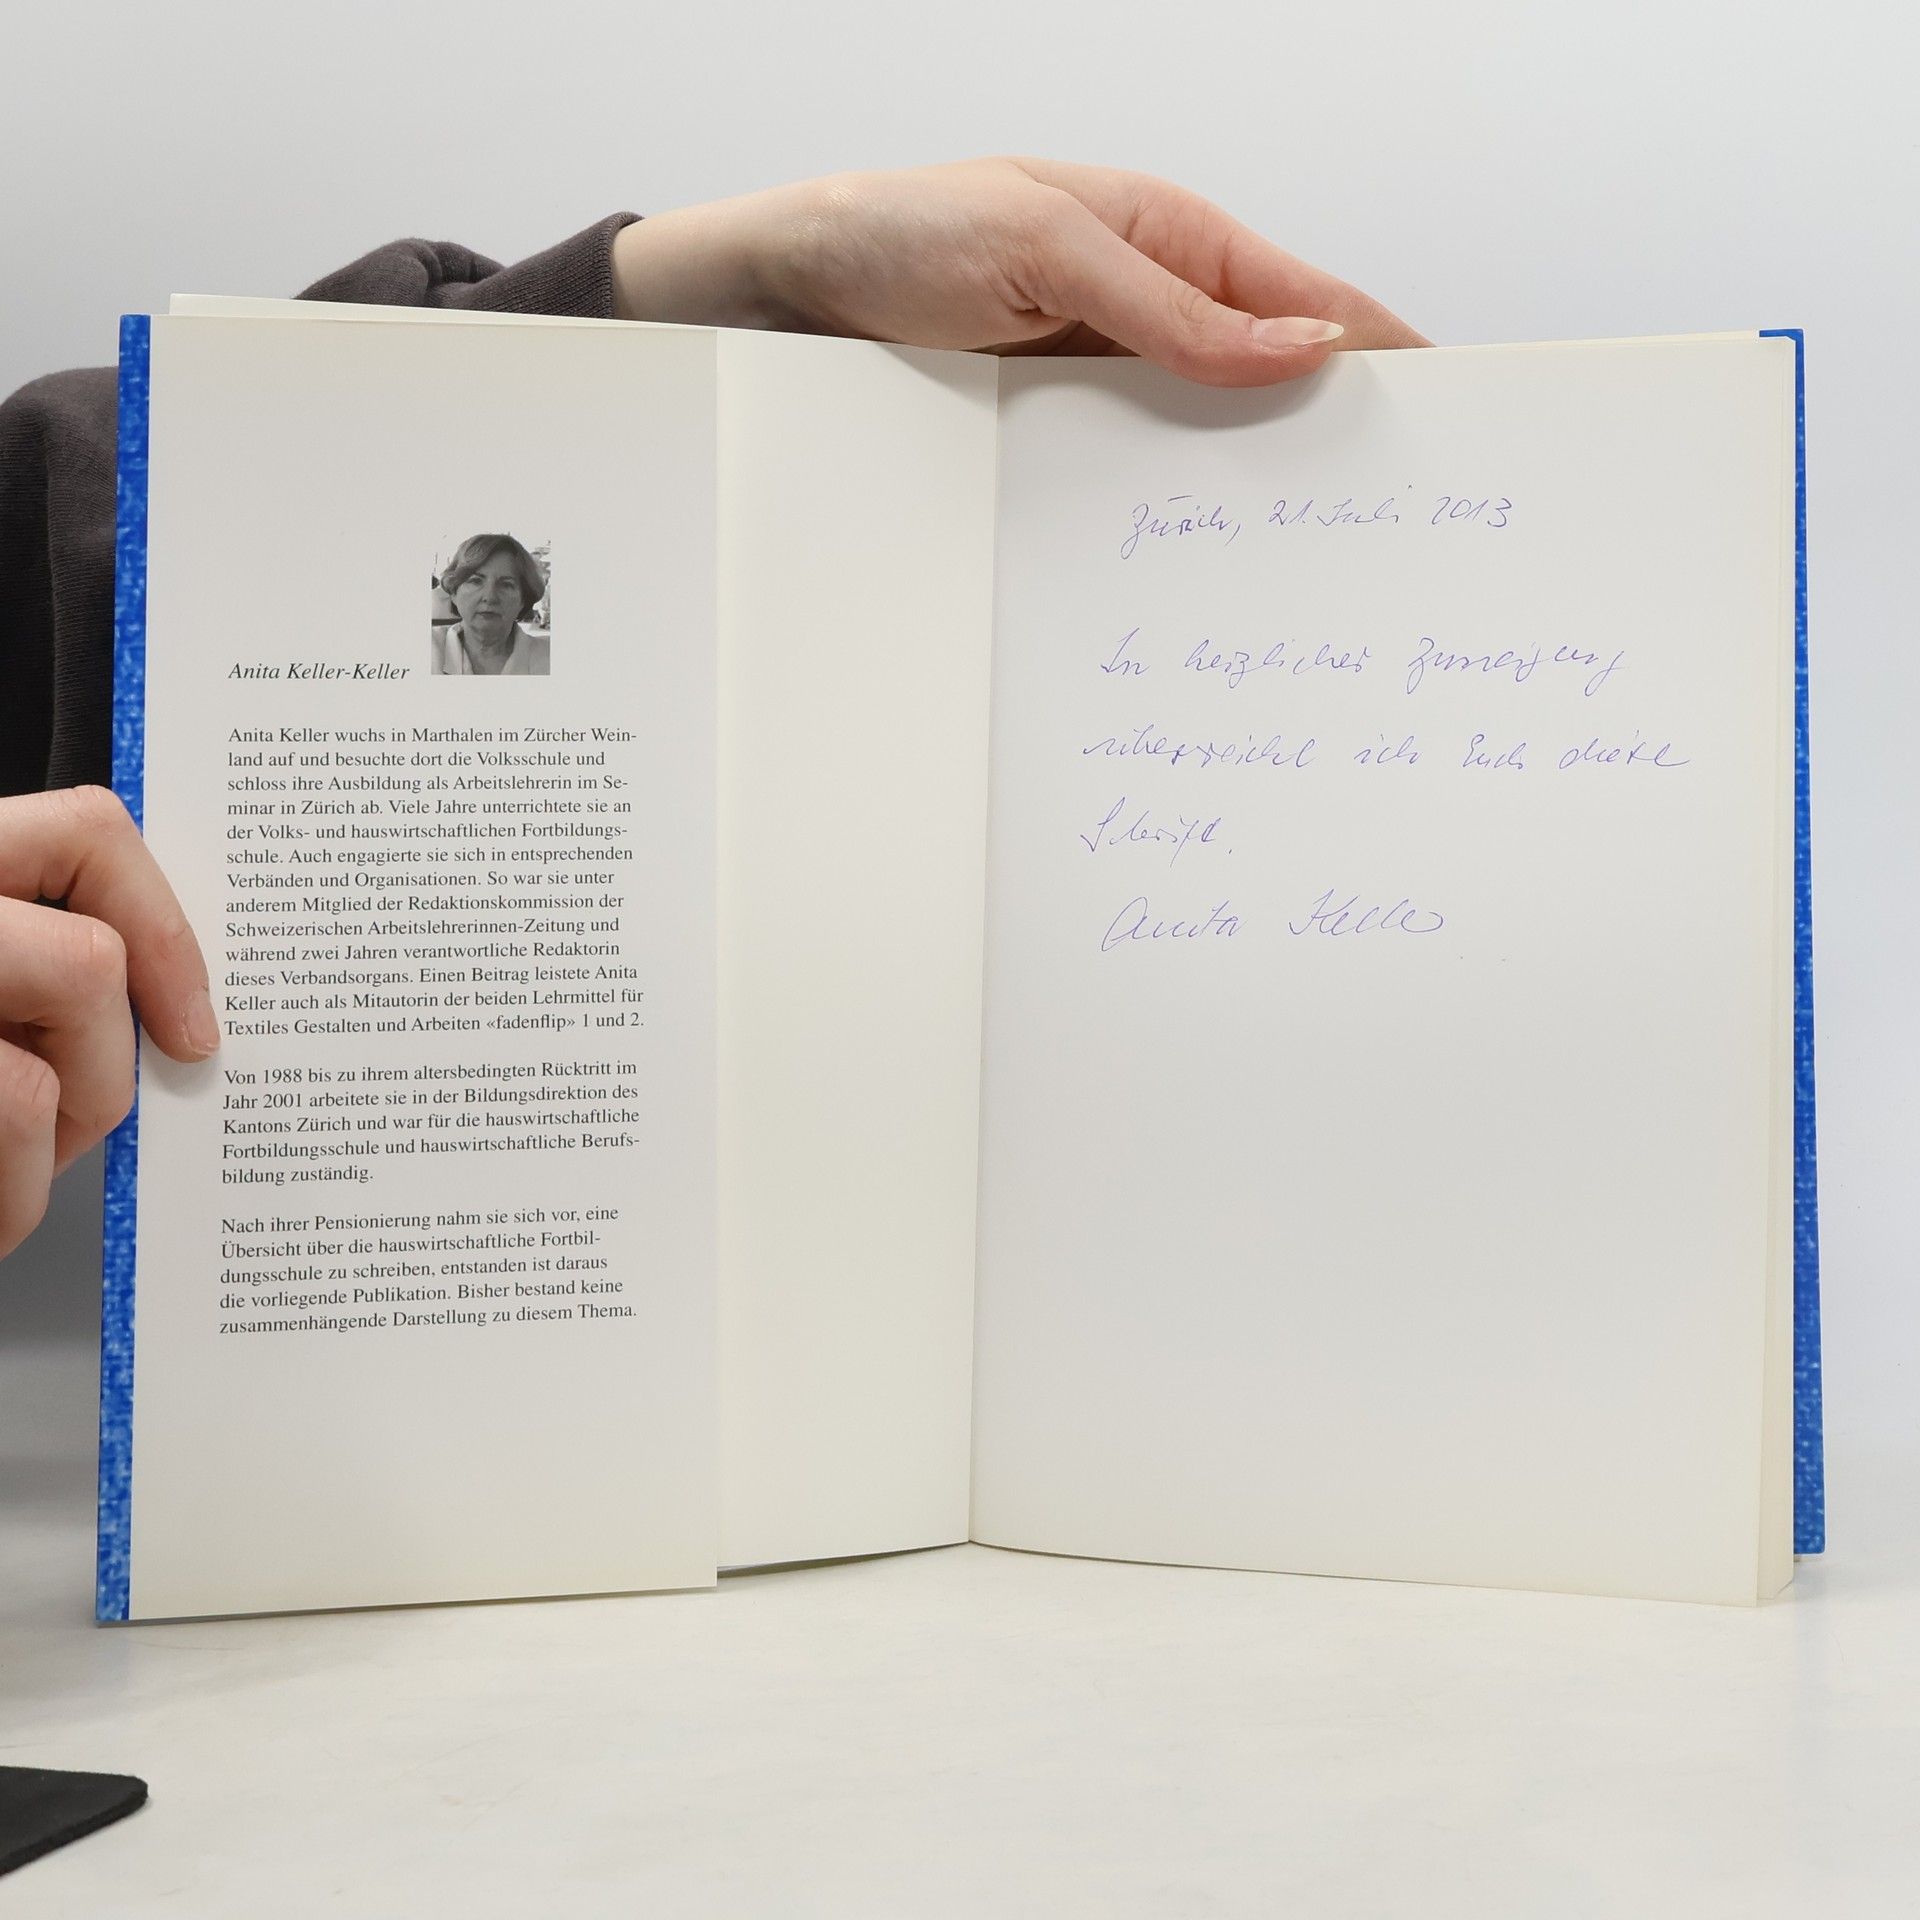 Anita Keller-Keller
Anita Keller wuchs in Marthalen im Zürcher Wein-
land auf und besuchte dort die Volksschule und
schloss ihre Ausbildung als Arbeitslehrerin im Se-
minar in Zürich ab. Viele Jahre unterrichtete sie an
der Volks- und hauswirtschaftlichen Fortbildungs-
schule. Auch engagierte sie sich in entsprechenden
Verbänden und Organisationen. So war sie unter
anderem Mitglied der Redaktionskommission der
Schweizerischen Arbeitslehrerinnen-Zeitung und
während zwei Jahren verantwortliche Redaktorin
dieses Verbandsorgans. Einen Beitrag leistete Anita
Keller auch als Mitautorin der beiden Lehrmittel für
Textiles Gestalten und Arbeiten «fadenflip» 1 und 2.
Von 1988 bis zu ihrem altersbedingten Rücktritt im
Jahr 2001 arbeitete sie in der Bildungsdirektion des
Kantons Zürich und war für die hauswirtschaftliche
Fortbildungsschule und hauswirtschaftliche Berufs-
bildung zuständig.
Nach ihrer Pensionierung nahm sie sich vor, eine
Übersicht über die hauswirtschaftliche Fortbil-
dungsschule zu schreiben, entstanden ist daraus
die vorliegende Publikation. Bisher bestand keine
zusammenhängende Darstellung zu diesem Thema.
Zürich, 21. Juli 2013
In herzlicher Zuneigung
überreicht ich Euch diese
Schrift.
Anita Keller